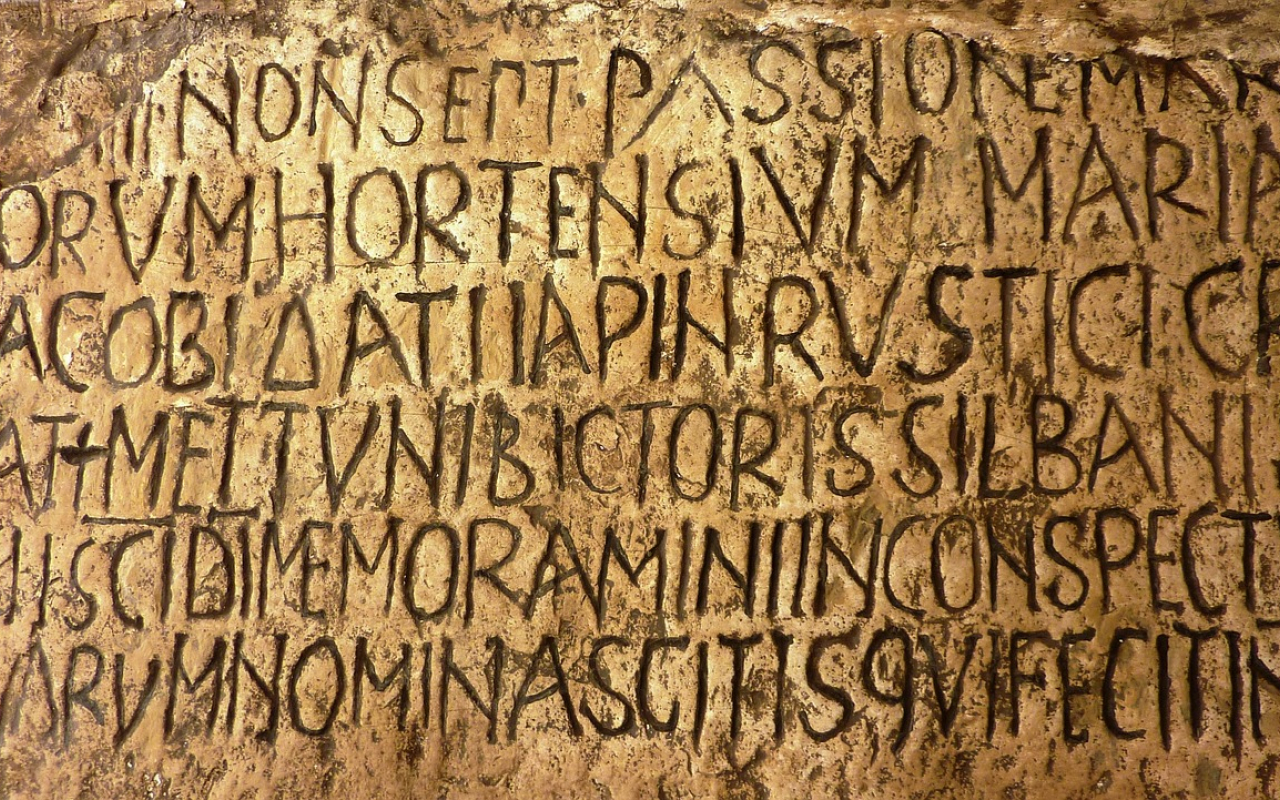 IIII NON SEPT · PASSIONE MAR
ORVM HORTENSIVM MARIA
ACOBI DATII IAPIN RVSTICI CR
AT + METTVNI BICTORIS SILBANI
SCI DI MEMORAMINI IN CONSPECT
ARVM NOMINA SCITIS QVI FECIT IN